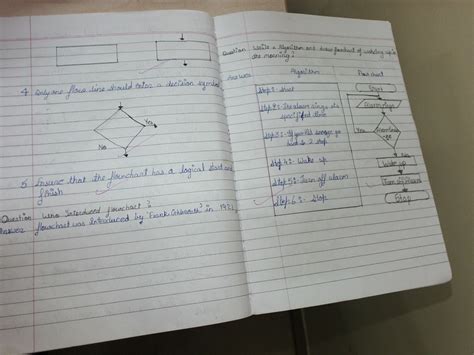 4. Only one flow line should enter a decision symbol
Yes
No
5. Ensure that the flowchart has a logical start and
finish
Question Who introduced flowchart?
Answer flowchart was introduced by 'Frank in 192
Question Write a Algorithm and draw of waking up in
the morning:-
Answer
Algorithm
Step 1:- Start
Step 2:- The alarm rings at
specified time
Step 3:- If you snooze go
to 2 step
Step 4:- Wake up
Step 5:- Turn off alarm
Step 6:- Stop
Flow chart
Start
Yes
Wake up
Turn off alarm
Stop